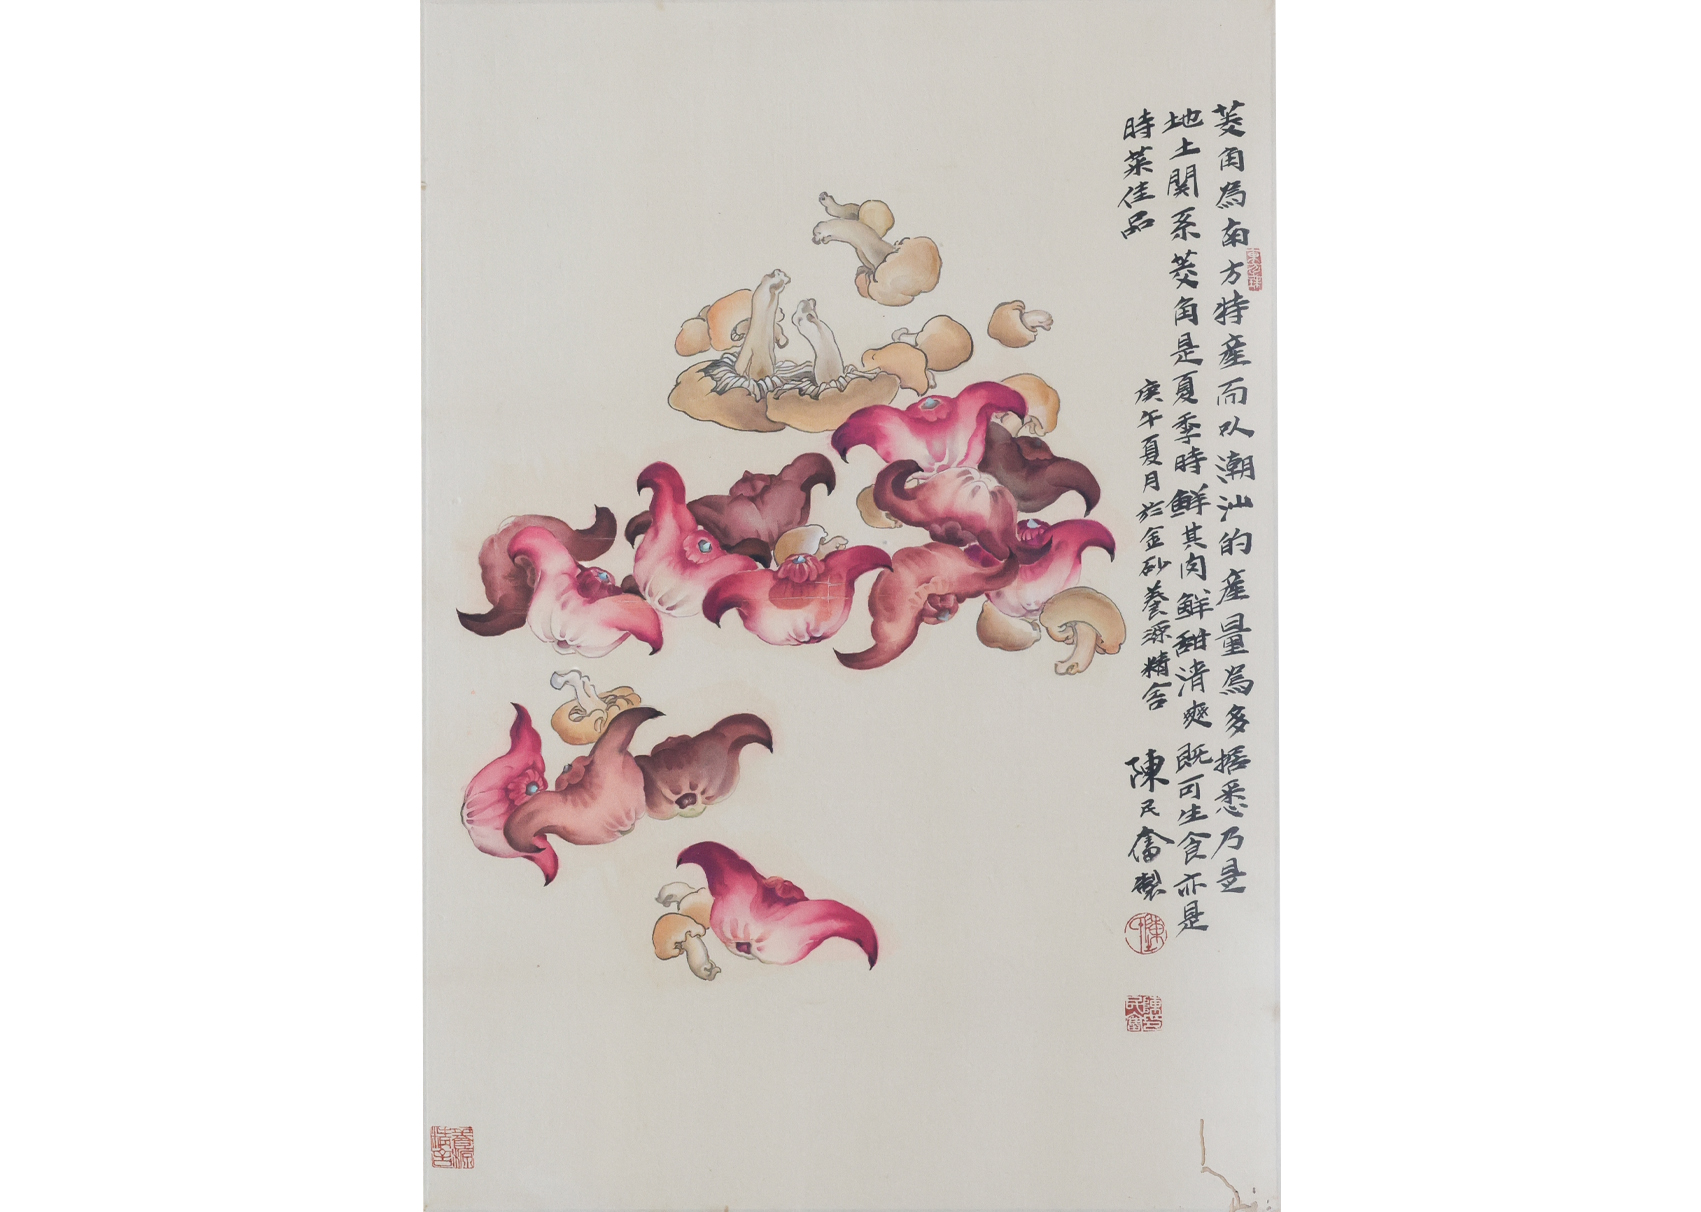 菱角為南方特産而以潮汕的産量為多據悉乃是
地土関系菱角是夏季時鮮其肉鮮甜清爽既可生食亦是
時菜佳品
庚午夏月於金砂養源精舍
陳民奮製